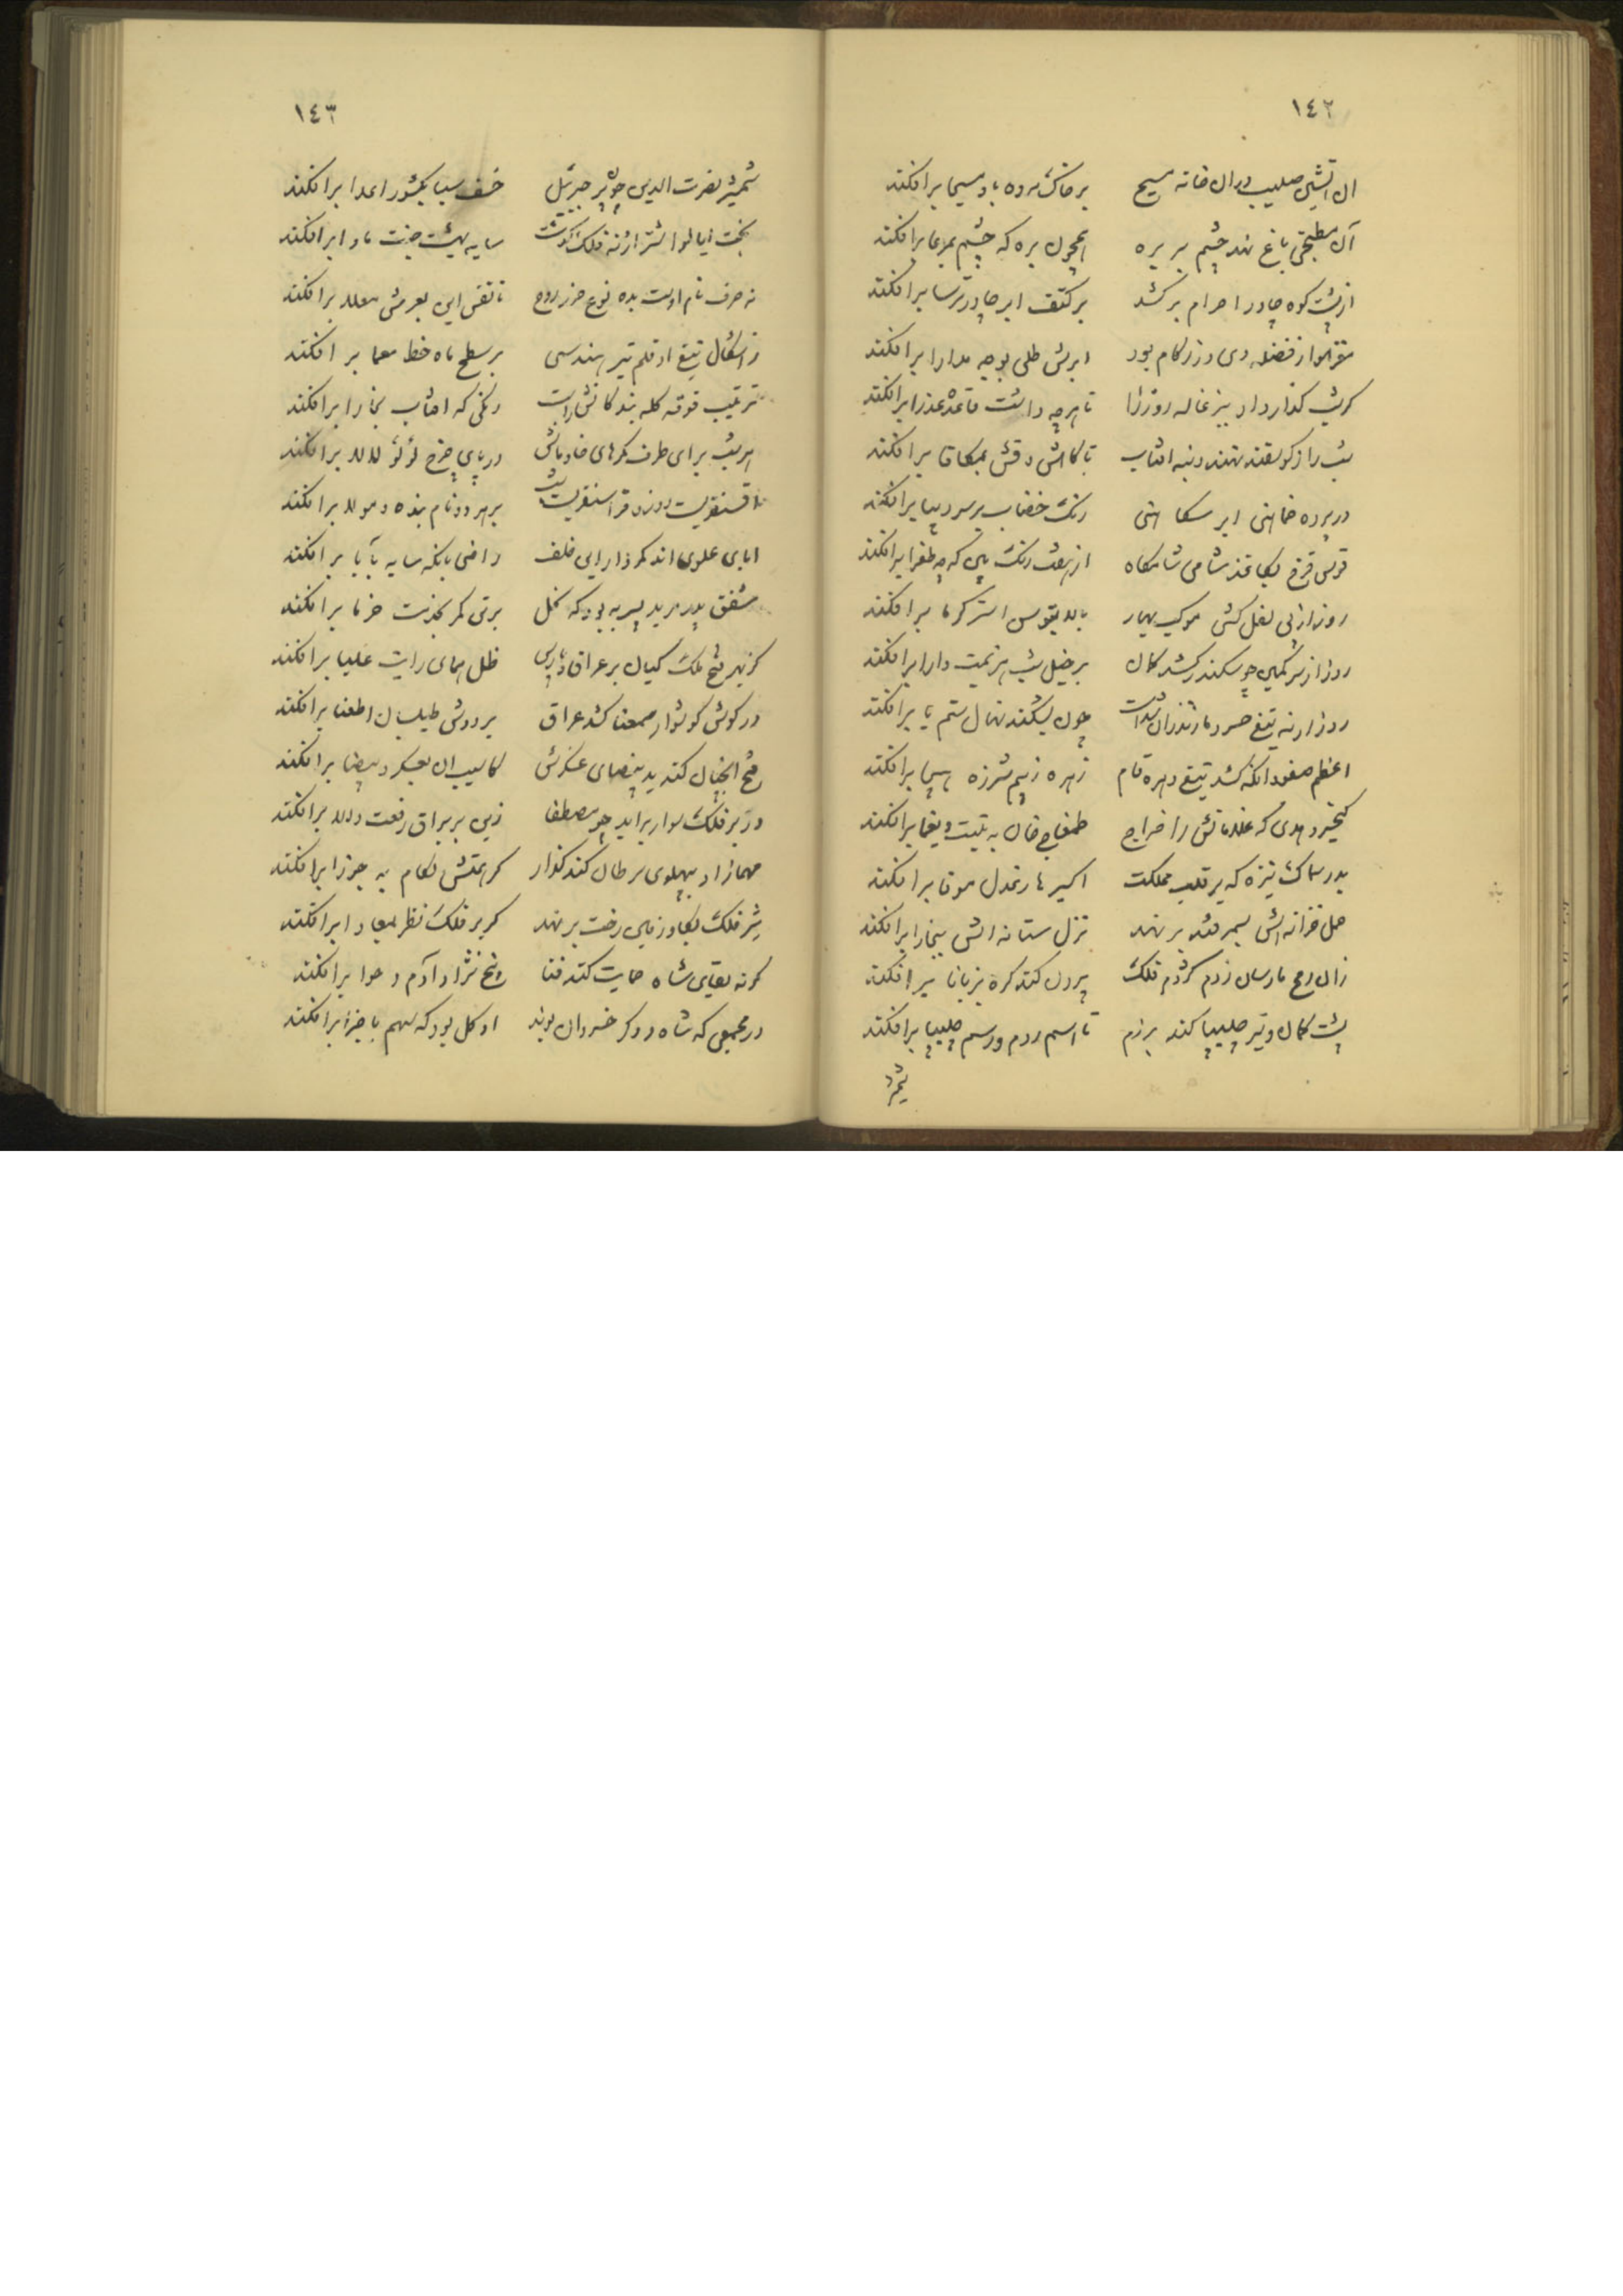 ١٤٢
ان آتشین صلیب در ان خانه مسیح بر خاک مرده باد مسیحا برافکند
آن مطبخی باغ نهد چشم بر بره همچون بره که چشم بمرعا برافکند
از پشت کوه چادر احرام برکشد بر کتف ابر چادر ترسا برافکند
مغز هوا ز فضله دی در زکام بود ابرش طلی بوجه مدارا برافکند
گر شب گذار داد ببزغاله روز را تا هر چه داشت قاعده عذرا برافکند
شب را ز گوسفند نهد دنبه افتاب تا کاهش دقش بمکافا برافکند
در پرده خماهنی ابر سکاهنی رنگ خضاب بر سر دنیا برافکند
قوس قزح بکاغذ شامی شامگاه از هفت رنگ بین که چه طغرا برافکند
روز از پی نعل کشی موکب بهار پالان بتوسن استر گرما برافکند
روز از کمین چو سکندر کشد کمان بر خیل شب هزیمت دارا برافکند
روز ارنه تیغ خسرو مازندران شدست چون بشکند نهال ستم یا برافکند
اعظم سپهبد آنکه کشد تیغ زهره فام زهره ز بیم شرزه هیجا برافکند
کیخسرو هدی که غلامانش را خراج طمغاج خان به تبت و یغما برافکند
بدر سماک نیزه که بر قلب مملکت اکسیرها ز عدل موفا برافکند
حمل خزانه اش بسمرقند بر نهد نزل ستانه اش ببخارا برافکند
زال رمح مارسان ز دم کژدم فلک بیرون کند گره بزبانا برافکند
پشت کمان و تیر چلیپا کند برزم تا اسم روم و رسم چلیپا برافکند
شمشیر
١٤٣
شمشیر نصرت الدین چون پر جبرئیل خسف سبا بکشور اعدا برافکند
بخت ایا لوا اشتر از نه فلک گذشت سایه بهشت جنت ماوا برافکند
نه حرف نام اوست بده نوع حرز روح تا نقش این بعرش معلا برافکند
ز اشکال تیغ او قلم تیر هندسی بر سطح ماه خط معما برافکند
ترتیب قوقه کله بندگانش راست رنگی که افتاب بخارا برافکند
هر شب برای طرف کمرهای خادمانش دریای چرخ لؤلؤ لالا برافکند
تا قسنقریست روز و قراسنقریست شب بر هر دو نام بنده و مولا برافکند
ابای علوی اند کمر دار این خلف راضی بانکه سایه بآبا برافکند
مشفق پدر مرید پسر به بود که نخل برتن کمر بخدمت خرما برافکند
کز بهر فتح ملک کیان بر عراق و پارس ظل همای رایت علیا برافکند
در گوش گوشوار سمعنا کشد عراق بر دوش طیلسان اطعنا برافکند
فتح الجبال کند ید بیضای عسکرش کاسیب ان بعسکر و بیضا برافکند
در زیر فلک سوار برآید چو مصطفا زین بر براق رفعت والا برافکند
مهماز او بپهلوی سرطان کند گذار گر همتش لگام به جوزا برافکند
شیر فلک بگاو زمین رخت بر نهد گر بر فلک نظر بمعادا برافکند
گر نه بقای شاه حمایت کند فنا بیخ نژاد آدم و حوا برافکند
در مجمعی که شاه و دگر خسروان بوند او کل بود که سهم باجزا برافکند